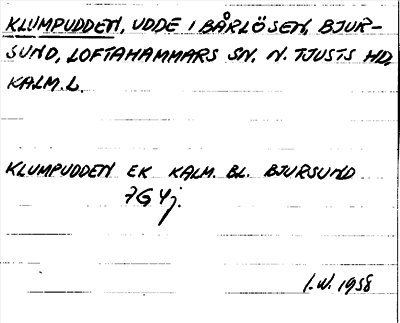 KLUMPUDDEN, UDDE I BÅRLÖSEN, BJUR-
SUND, LOFTAHAMMARS SN. N. TJUSTS HD,
KALM.L.
KLUMPUDDEN EK KALM. BL. BJURSUND
7G4j.
I.W. 1958